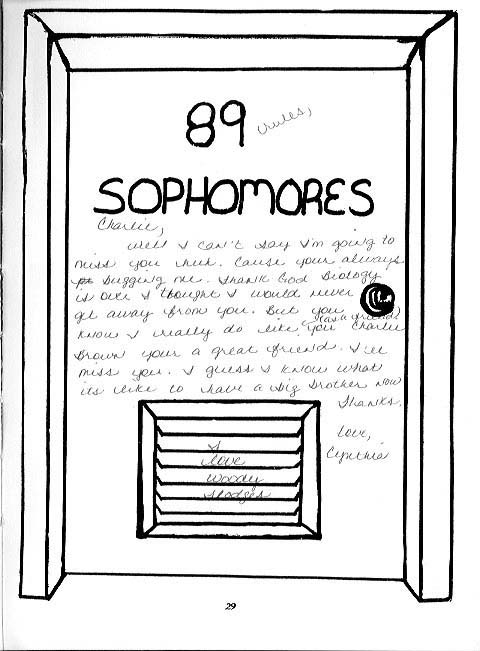 89 rules,
SOPHOMORES
Charlie,
Well I can't say I'm going to
miss you here. Cause your always
bugging me. Thank God Biology
is over I thought I would never
get away from you. But you
(as a friend)
know I really do like you Charlie
Brown your a great friend. I'll
miss you. I guess I know what
its like to have a big brother now
Thanks.
Love,
Cynthia
I
love
Woody
Hodges
29